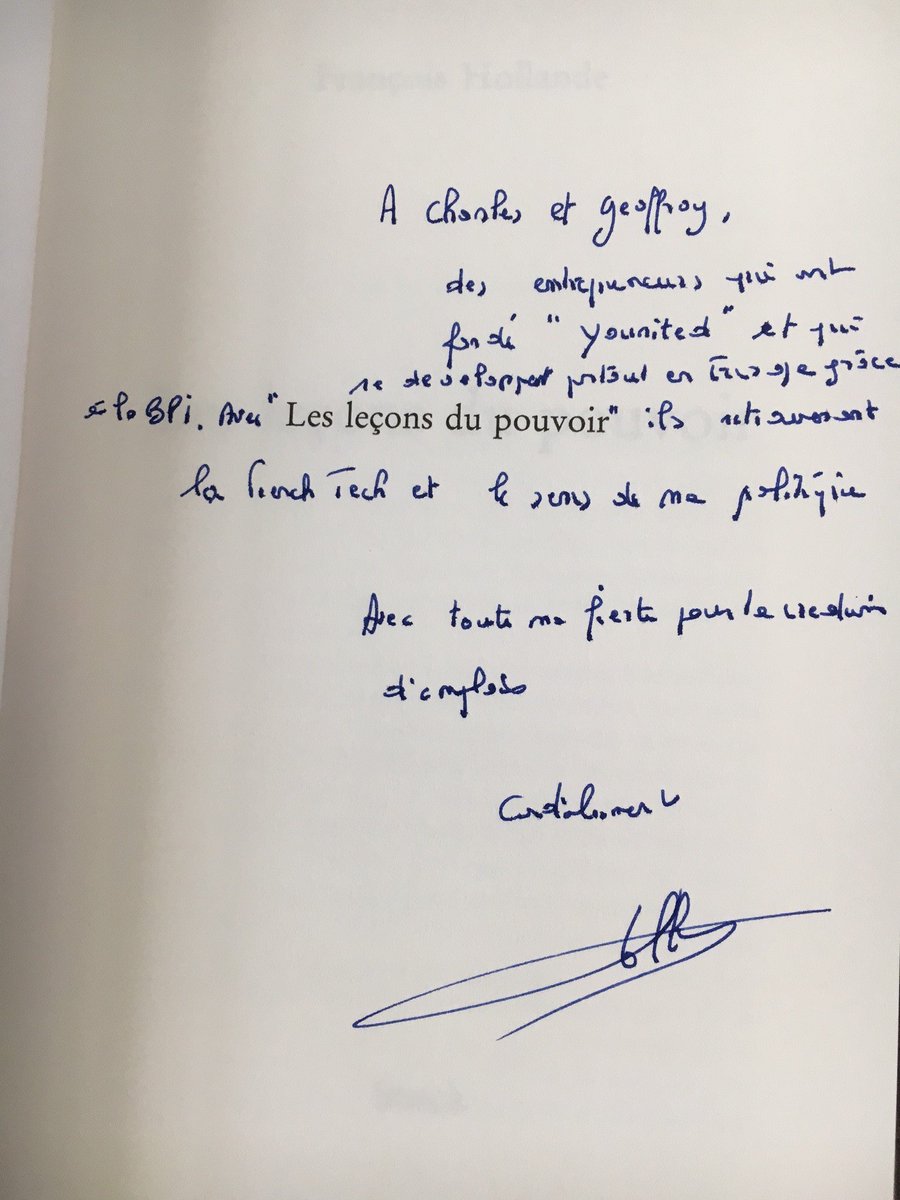 François Hollande
A Charles et Geoffroy,
des entrepreneurs qui ont
fondé "Younited" et qui
se développent partout en Europe grâce
à la BPI. Avec "Les leçons du pouvoir" ils retrouveront
la French Tech et le sens de ma politique
Avec toute ma fierté pour la création
d'emplois
Cordialement